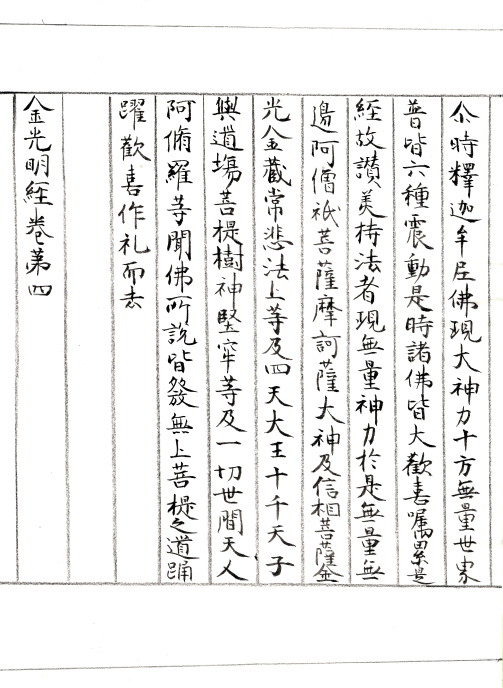 尒時釋迦牟尼佛現大神力十方無量世界
普皆六種震動是時諸佛皆大歡喜囑累是
經故讚美持法者現無量神力於是無量無
邊阿僧祇菩薩摩訶薩大神及信相菩薩金
光金藏常悲法上等及四天大王十千天子
與道場菩提樹神堅牢等及一切世間天人
阿脩羅等聞佛所說皆發無上菩提之道踊
躍歡喜作礼而去
金光明經卷第四